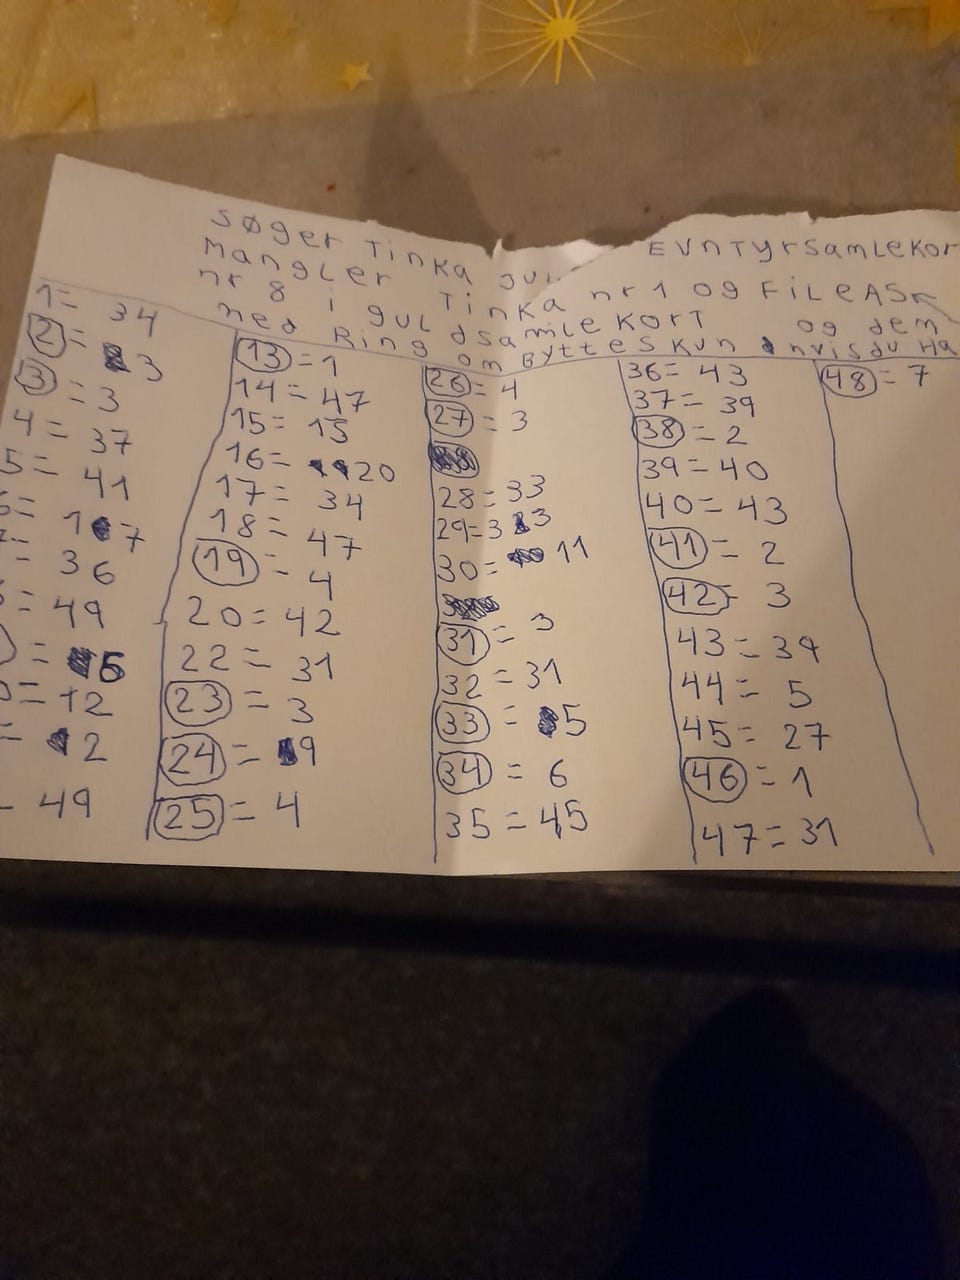 søger Tinka Jul EVnTyrsamleKor
mangler Tinka nr 1 og FileASK
nr 8 i guldsamleKORT og dem
med Ring om Byttes Kun hvisdu Ha
1= 34
2= 3
3 = 3
4 = 37
5= 41
6= 17
= 36
= 49
= 5
0= 12
= 2
- 49
13 = 1
14 = 47
15= 15
16= 20
17= 34
18= 47
19 = 4
20= 42
22= 31
23 = 3
24 = 9
25 = 4
26= 4
27 = 3
28= 33
29=33
30= 11
31 = 3
32 = 31
33 = 5
34 = 6
35 = 45
36= 43
37= 39
38 = 2
39= 40
40= 43
41 = 2
42= 3
43= 39
44= 5
45= 27
46 = 1
47= 31
48 = 7